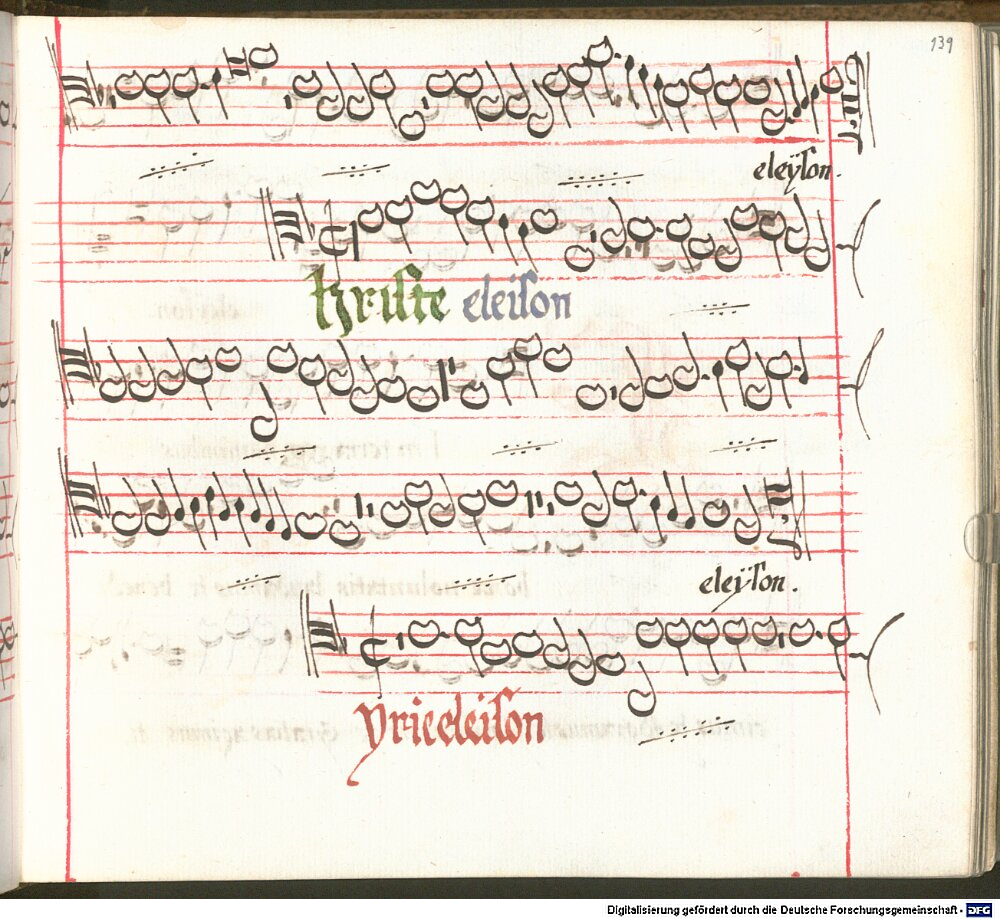 139
eleÿson.
Kriste eleison
eleÿson.
Yrieeleison
Digitalisierung gefördert durch die Deutsche Forschungsgemeinschaft - DFG